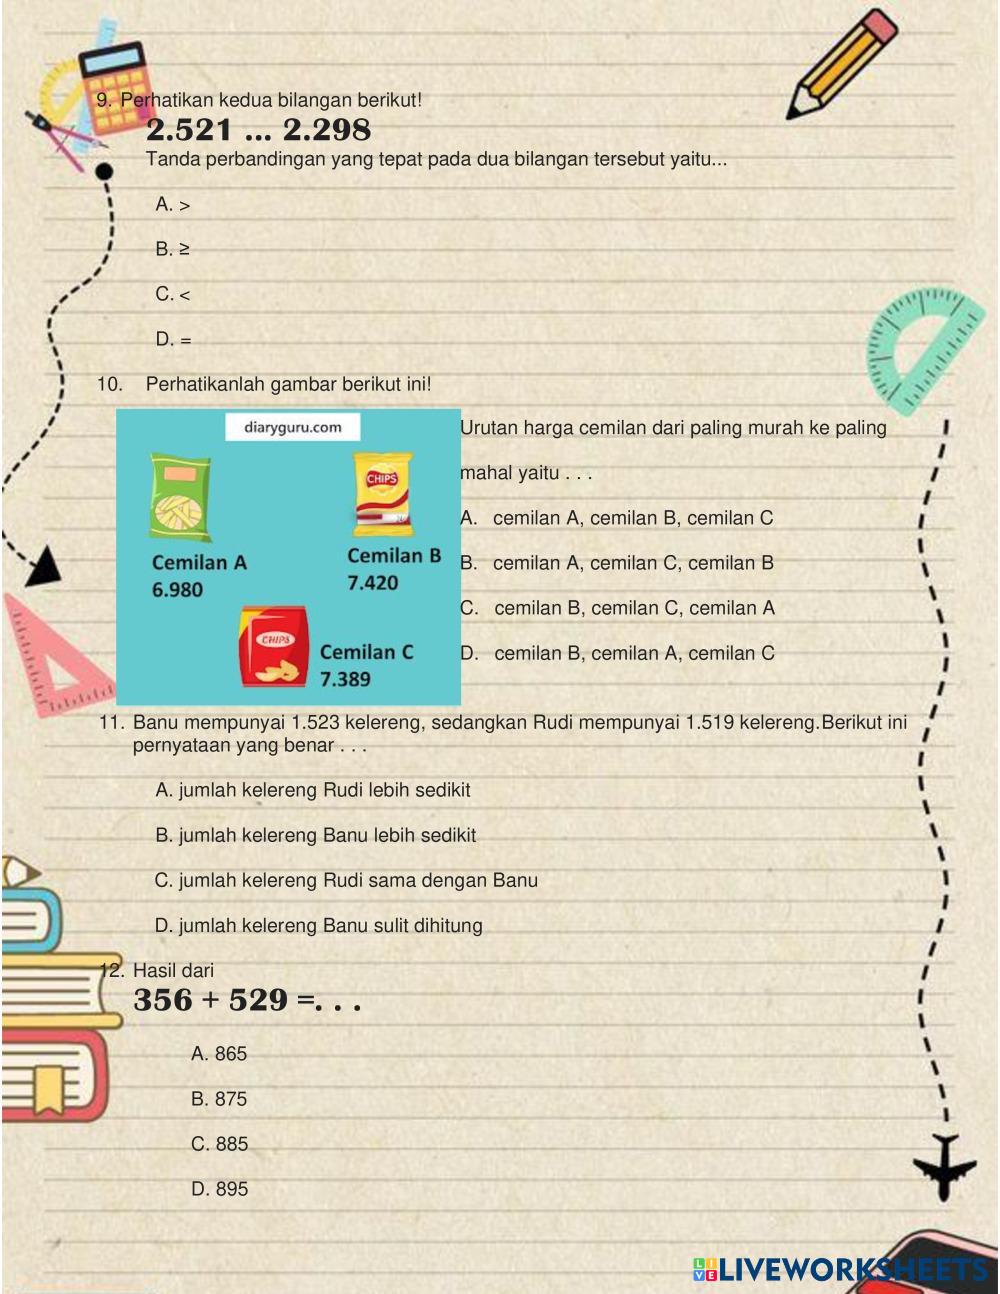 9. Perhatikan kedua bilangan berikut!
2.521 ... 2.298
Tanda perbandingan yang tepat pada dua bilangan tersebut yaitu...
A. >
B. ≥
C. <
D. =
10. Perhatikanlah gambar berikut ini!
diaryguru.com
CHIPS
Cemilan A
6.980
Cemilan B
7.420
CHIPS
Cemilan C
7.389
Urutan harga cemilan dari paling murah ke paling
mahal yaitu . . .
A. cemilan A, cemilan B, cemilan C
B. cemilan A, cemilan C, cemilan B
C. cemilan B, cemilan C, cemilan A
D. cemilan B, cemilan A, cemilan C
11. Banu mempunyai 1.523 kelereng, sedangkan Rudi mempunyai 1.519 kelereng.Berikut ini
pernyataan yang benar . . .
A. jumlah kelereng Rudi lebih sedikit
B. jumlah kelereng Banu lebih sedikit
C. jumlah kelereng Rudi sama dengan Banu
D. jumlah kelereng Banu sulit dihitung
12. Hasil dari
356 + 529 =. . .
A. 865
B. 875
C. 885
D. 895
LIVE LIVEWORKSHEETS